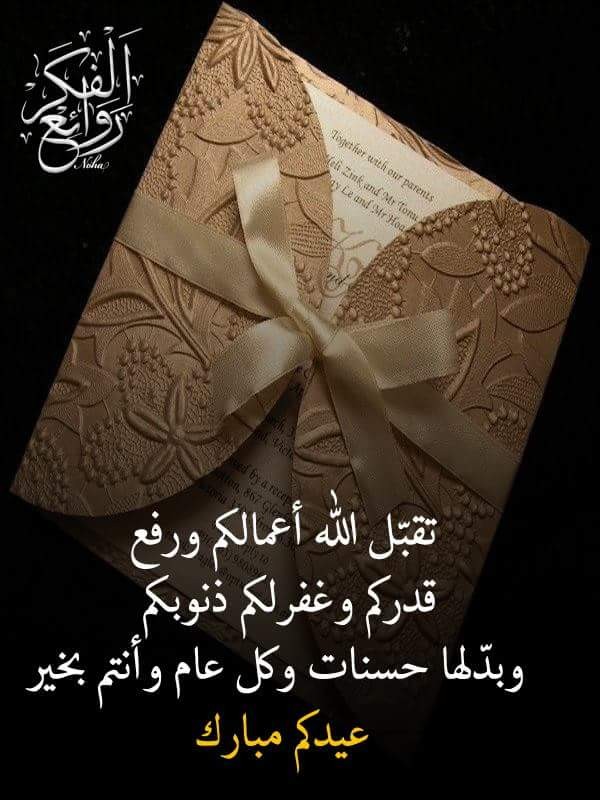 روائع الفكر
Noha
Together with our parents
Zink and Mr
Le and Mr
تقبّل الله أعمالكم ورفع
قدركم وغفرلكم ذنوبكم
وبدّلها حسنات وكل عام وأنتم بخير
عيدكم مبارك